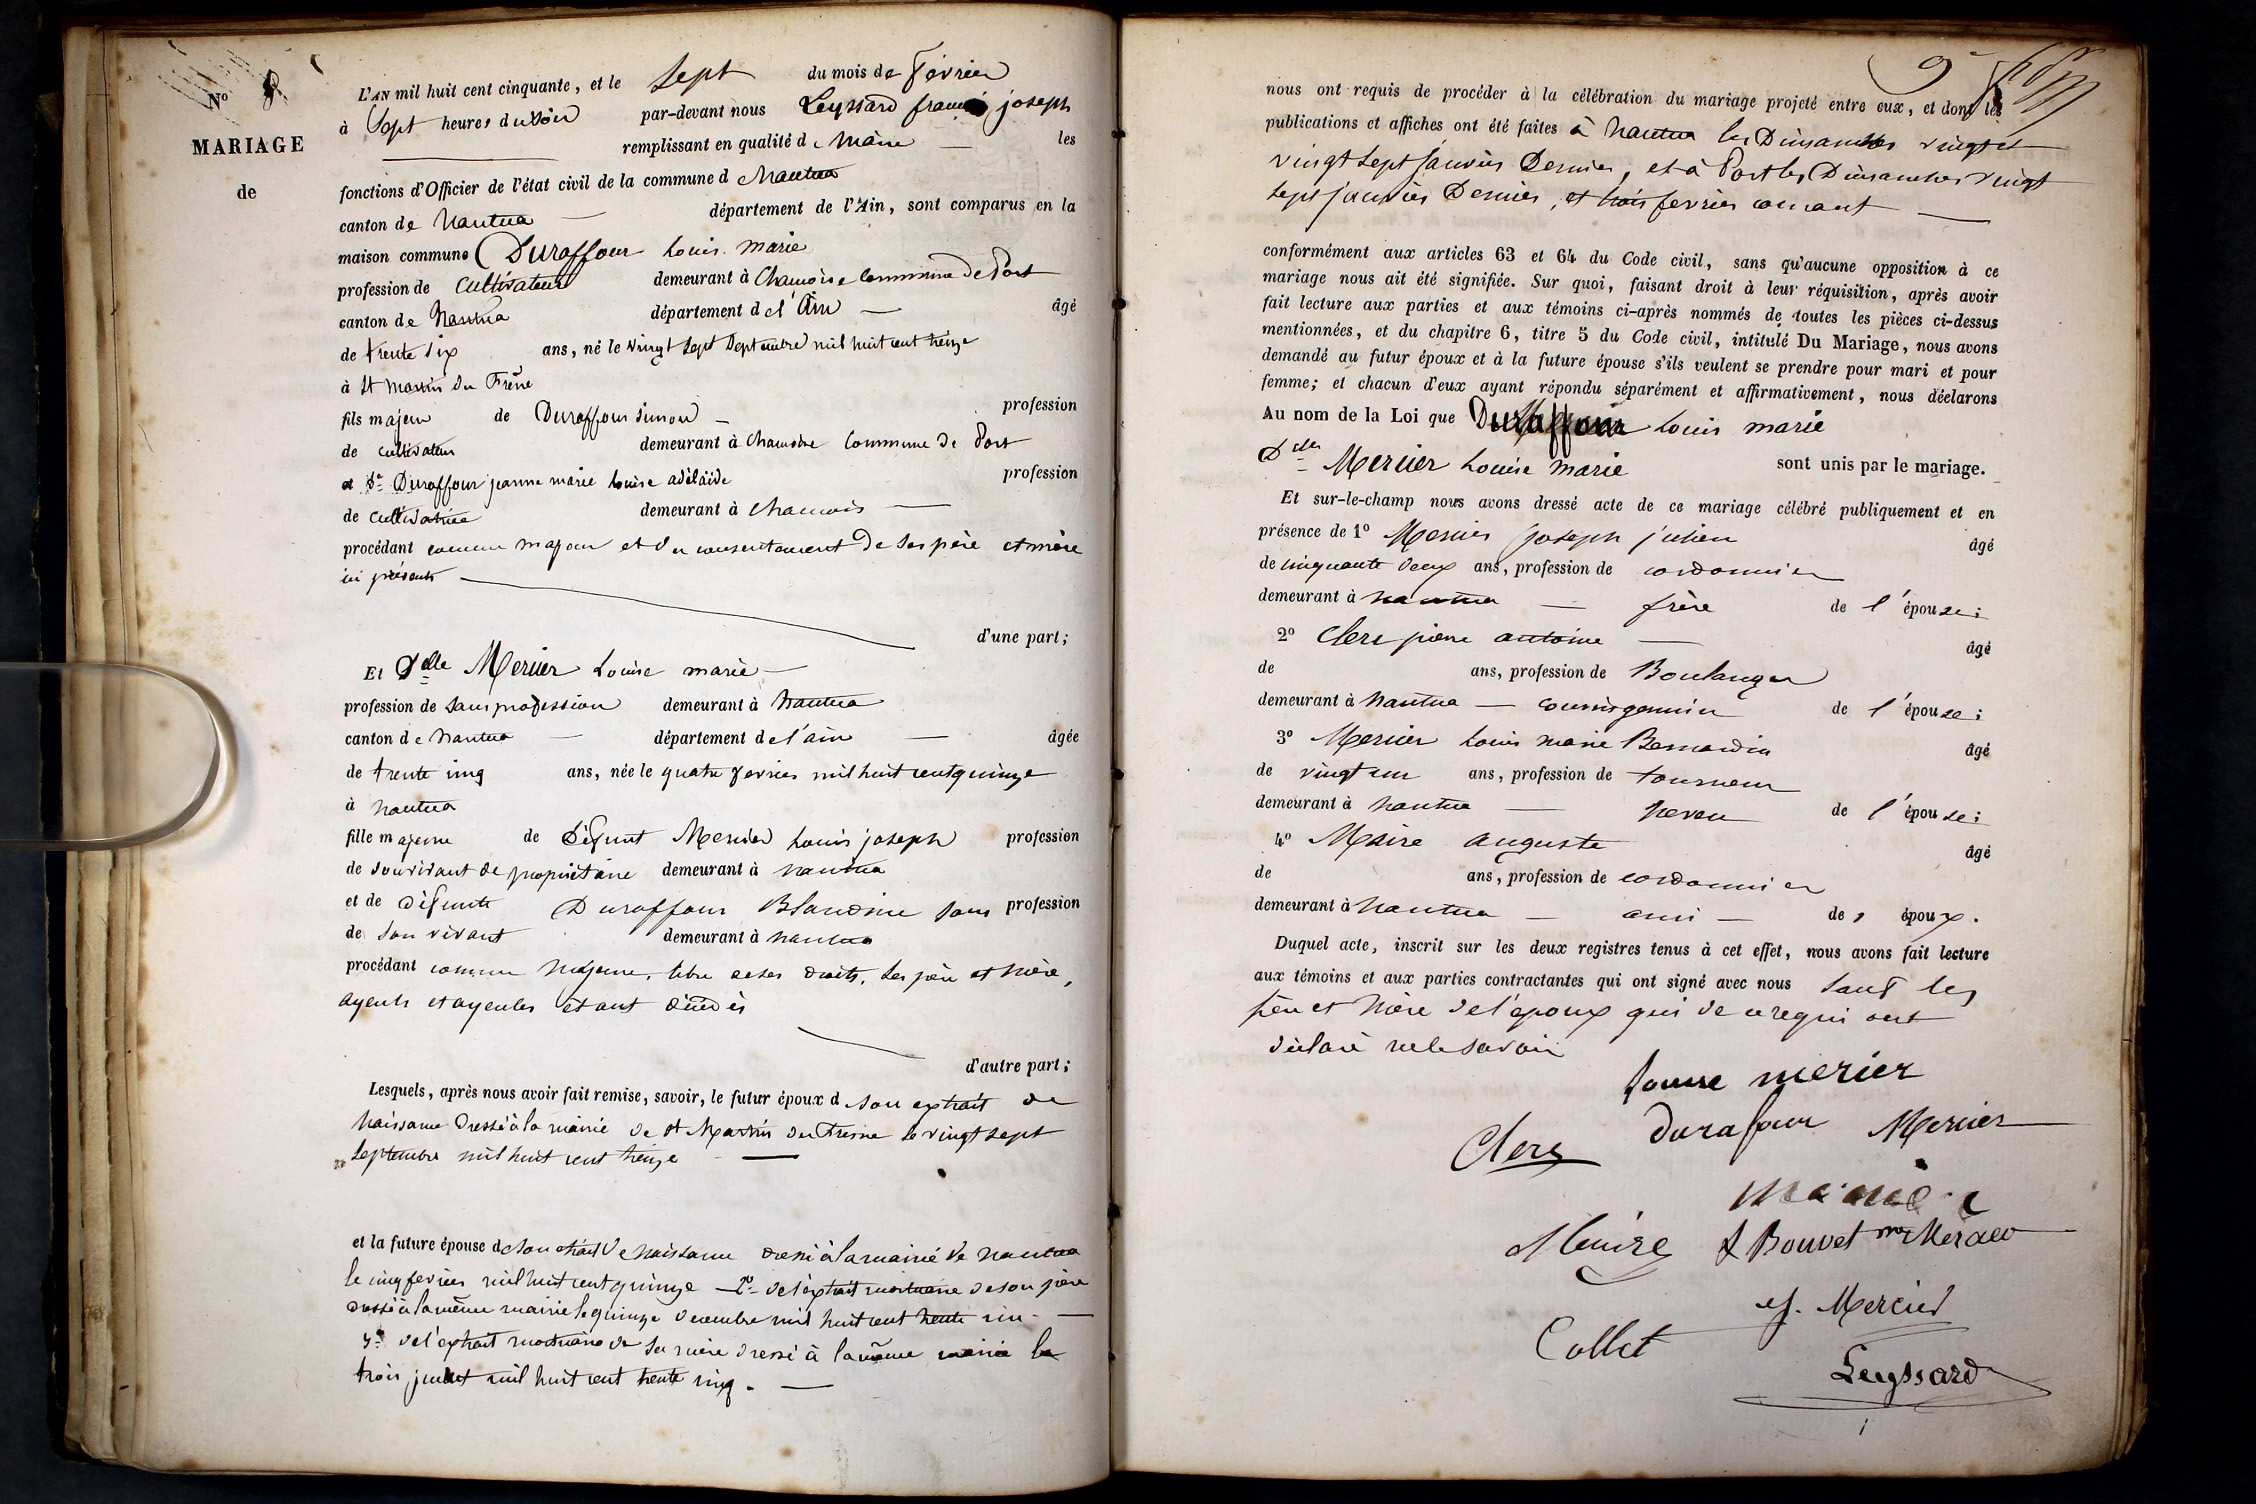 N° 8
MARIAGE
de
L'AN mil huit cent cinquante, et le Sept du mois de Février
à Sept heures du soir par-devant nous Leyssard françois joseph
remplissant en qualité de Maire les
fonctions d'Officier de l'état civil de la commune de Nantua
canton de Nantua département de l'Ain, sont comparus en la
maison commune Duraffour Louis marie
profession de Cultivateur demeurant à Chamoise Commune de Port
canton de Nantua département de l'Ain âgé
de trente six ans, né le vingt sept Septembre mil huit cent treize
à St Martin du Frêne
fils majeur de Duraffour Simon profession
de cultivateur demeurant à Chamoise Commune de Port
et de Duraffour jeanne marie Louise adélaïde profession
de cultivatrice demeurant à Chamois
procédant comme majeur et du consentement de ses père et mère
ici présents
d'une part;
Et Delle Mercier Louise marie
profession de sans profession demeurant à Nantua
canton de Nantua département de l'ain âgée
de trente cinq ans, née le quatre fevrier mil huit cent quinze
à Nantua
fille majeure de Défunt Mercier Louis joseph profession
de son vivant de propriétaire demeurant à Nantua
et de défunte Duraffour Blandine sans profession
de son vivant demeurant à Nantua
procédant comme Majeure, libre de ses droits, ses père et mère,
ayeuls et ayeules étant décédés
d'autre part;
Lesquels, après nous avoir fait remise, savoir, le futur époux de son extrait de
Naissance dressé à la mairie de St Martin du Fresne le vingt sept
Septembre mil huit cent treize
et la future épouse de son extrait de Naissance dressé à la mairie de Nantua
le cinq fevrier mil huit cent quinze — 2° de l'extrait mortuaire de son père
dressé à la même mairie le quinze decembre mil huit cent trente
de l'extrait mortuaire de sa mère dressé à la même mairie le
trois juillet mil huit cent trente cinq.
9
nous ont requis de procéder à la célébration du mariage projeté entre eux, et dont les
publications et affiches ont été faites à Nantua les Dimanches vingt et
vingt sept Janvier Dernier, et à Port les Dimanches vingt
sept janvier Dernier, et trois fevrier courant
conformément aux articles 63 et 64 du Code civil, sans qu'aucune opposition à ce
mariage nous ait été signifiée. Sur quoi, faisant droit à leur réquisition, après avoir
fait lecture aux parties et aux témoins ci-après nommés de toutes les pièces ci-dessus
mentionnées, et du chapitre 6, titre 5 du Code civil, intitulé Du Mariage, nous avons
demandé au futur époux et à la future épouse s'ils veulent se prendre pour mari et pour
femme; et chacun d'eux ayant répondu séparément et affirmativement, nous déclarons
Au nom de la Loi que Duraffour Louis marie
Delle Mercier Louise marie sont unis par le mariage.
Et sur-le-champ nous avons dressé acte de ce mariage célébré publiquement et en
présence de 1° Mercier joseph julien âgé
de cinquante deux ans, profession de cordonnier
demeurant à Nantua frère de l'épouse;
2° Clerc pierre antoine âgé
de ans, profession de Boulanger
demeurant à Nantua — cousin germain de l'épouse;
3° Mercier Louis marie Bernardin âgé
de vingt un ans, profession de tourneur
demeurant à Nantua — Neveu de l'épouse;
4° Maire auguste âgé
de ans, profession de cordonnier
demeurant à Nantua — ami — de l'époux.
Duquel acte, inscrit sur les deux registres tenus à cet effet, nous avons fait lecture
aux témoins et aux parties contractantes qui ont signé avec nous sauf les
père et mère de l'époux qui de ce requis ont
déclaré ne le savoir
Louise merier
Clerc durafour Mercier
Maire f Bouvet
Mercier
Collet
Leyssard